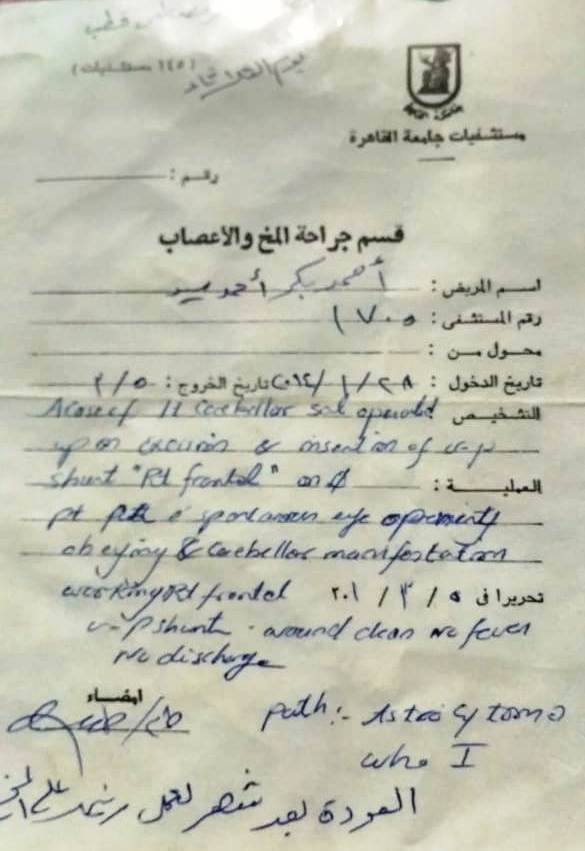 يوم الثلاثاء
(١٤٥ مستشفيات)
مستشفيات جامعة القاهرة
رقم :
قسم جراحة المخ والأعصاب
اسم المريض : أحمد بكر أحمد سيد
رقم المستشفى : ١٧٠٥
محول من :
تاريخ الدخول : ٢٨/١/٢٠١٤ تاريخ الخروج : ٥/٣
التشخيص A case of Cerebellar sol operated
upon excision & insertion of v-p
العملية : shunt "Rt frontal" on
pt spontaneous eye opening
obeying & Cerebellar manifestation
تحريرا فى ٥ / ٣ / ٢٠١ working Rt frontal
v-p shunt . wound clean no fever
No discharge
امضاء
path:- Astrocytoma
who I
العودة بعد شهر لعمل رنين على المخ